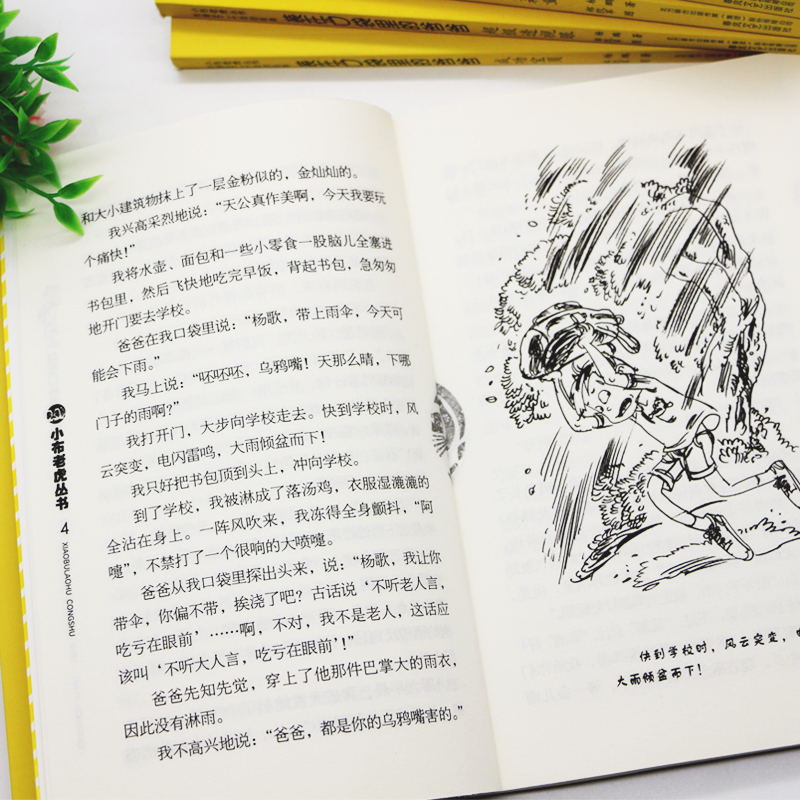 装在口袋里的爸爸
和大小建筑物抹上了一层金粉似的，金灿灿的。
我兴高采烈地说：“天公真作美啊，今天我要玩
个痛快！”
我将水壶、面包和一些小零食一股脑儿全塞进
书包里，然后飞快地吃完早饭，背起书包，急匆匆
地开门要去学校。
爸爸在我口袋里说：“杨歌，带上雨伞，今天可
能会下雨。”
我马上说：“呸呸呸，乌鸦嘴！天那么晴，下哪
门子的雨啊？”
我打开门，大步向学校走去。快到学校时，风
云突变，电闪雷鸣，大雨倾盆而下！
我只好把书包顶到头上，冲向学校。
到了学校，我被淋成了落汤鸡，衣服湿漉漉的
全沾在身上。一阵风吹来，我冻得全身颤抖，“阿
嚏”，不禁打了一个很响的大喷嚏。
爸爸从我口袋里探出头来，说：“杨歌，我让你
带伞，你偏不带，挨浇了吧？古话说‘不听老人言，
吃亏在眼前’……啊，不对，我不是老人，这话应
该叫‘不听大人言，吃亏在眼前’！”
爸爸先知先觉，穿上了他那件巴掌大的雨衣，
因此没有淋雨。
我不高兴地说：“爸爸，都是你的乌鸦嘴害的。”
小布老虎丛书
4
XIAOBULAOHU CONGSHU
快到学校时，风云突变，电
大雨倾盆而下！